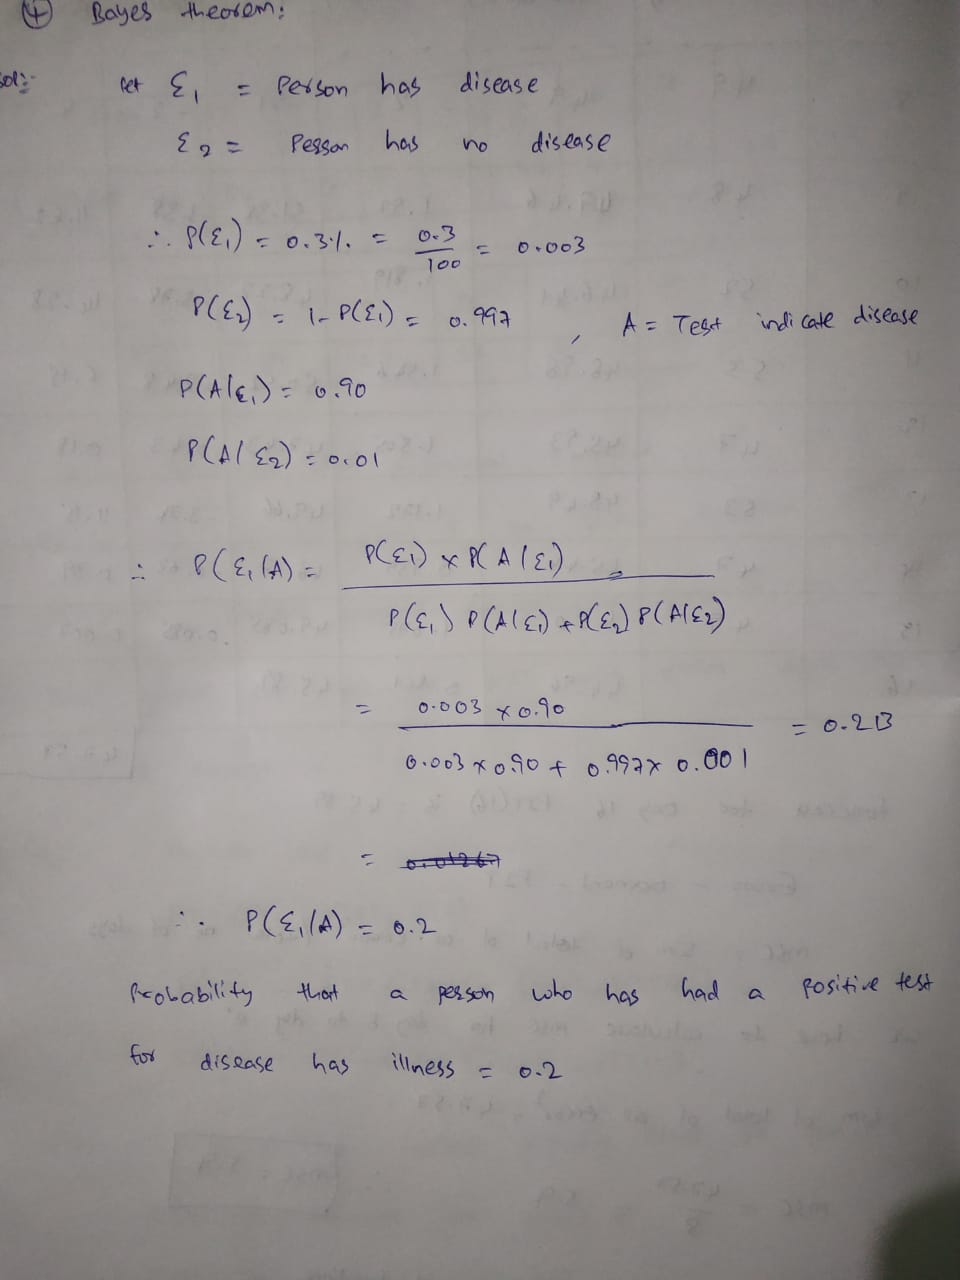 ④ Bayes theorem:
Sol:- let ε₁ = Person has disease
ε₂ = Person has no disease
∴ P(ε₁) = 0.3% = 0.3/100 = 0.003
P(ε₂) = 1- P(ε₁) = 0.997 , A = Test indicate disease
P(A|ε₁) = 0.90
P(A|ε₂) = 0.01
∴ P(ε₁|A) = P(ε₁) x P(A|ε₁)
P(ε₁) P(A|ε₁) + P(ε₂) P(A|ε₂)
= 0.003 x 0.90 = 0.213
0.003 x 0.90 + 0.997 x 0.001
= 0.01267
∴ P(ε₁|A) = 0.2
Probability that a person who has had a positive test
for disease has illness = 0.2